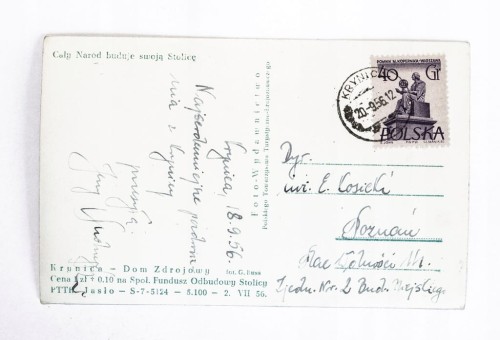 Cały Naród buduje swoją Stolicę
Krynica, 18.9.56.
Najserdeczniejsze pozdrowie
nia z Krynicy
przesyła
Jerzy
Krynica - Dom Zdrojowy fot. G. Russ
Cena 1 zł + 0.10 na Społ. Fundusz Odbudowy Stolicy
PTTK Jasło - S-7-5124 - 5.100 - 2. VII 56.
Foto-Widawnictwo
Polskiego Towarzystwa Turystyczno-Krajoznawczego
POMNIK M. KOPERNIKA - WARSZAWA
40 Gr
POLSKA
KRYNICA
20-9.56.12
Dyr.
inż. E. Kosicki
Poznań
Plac Wolności
Zjedn. Nr. 2 Bud. Miejskiego